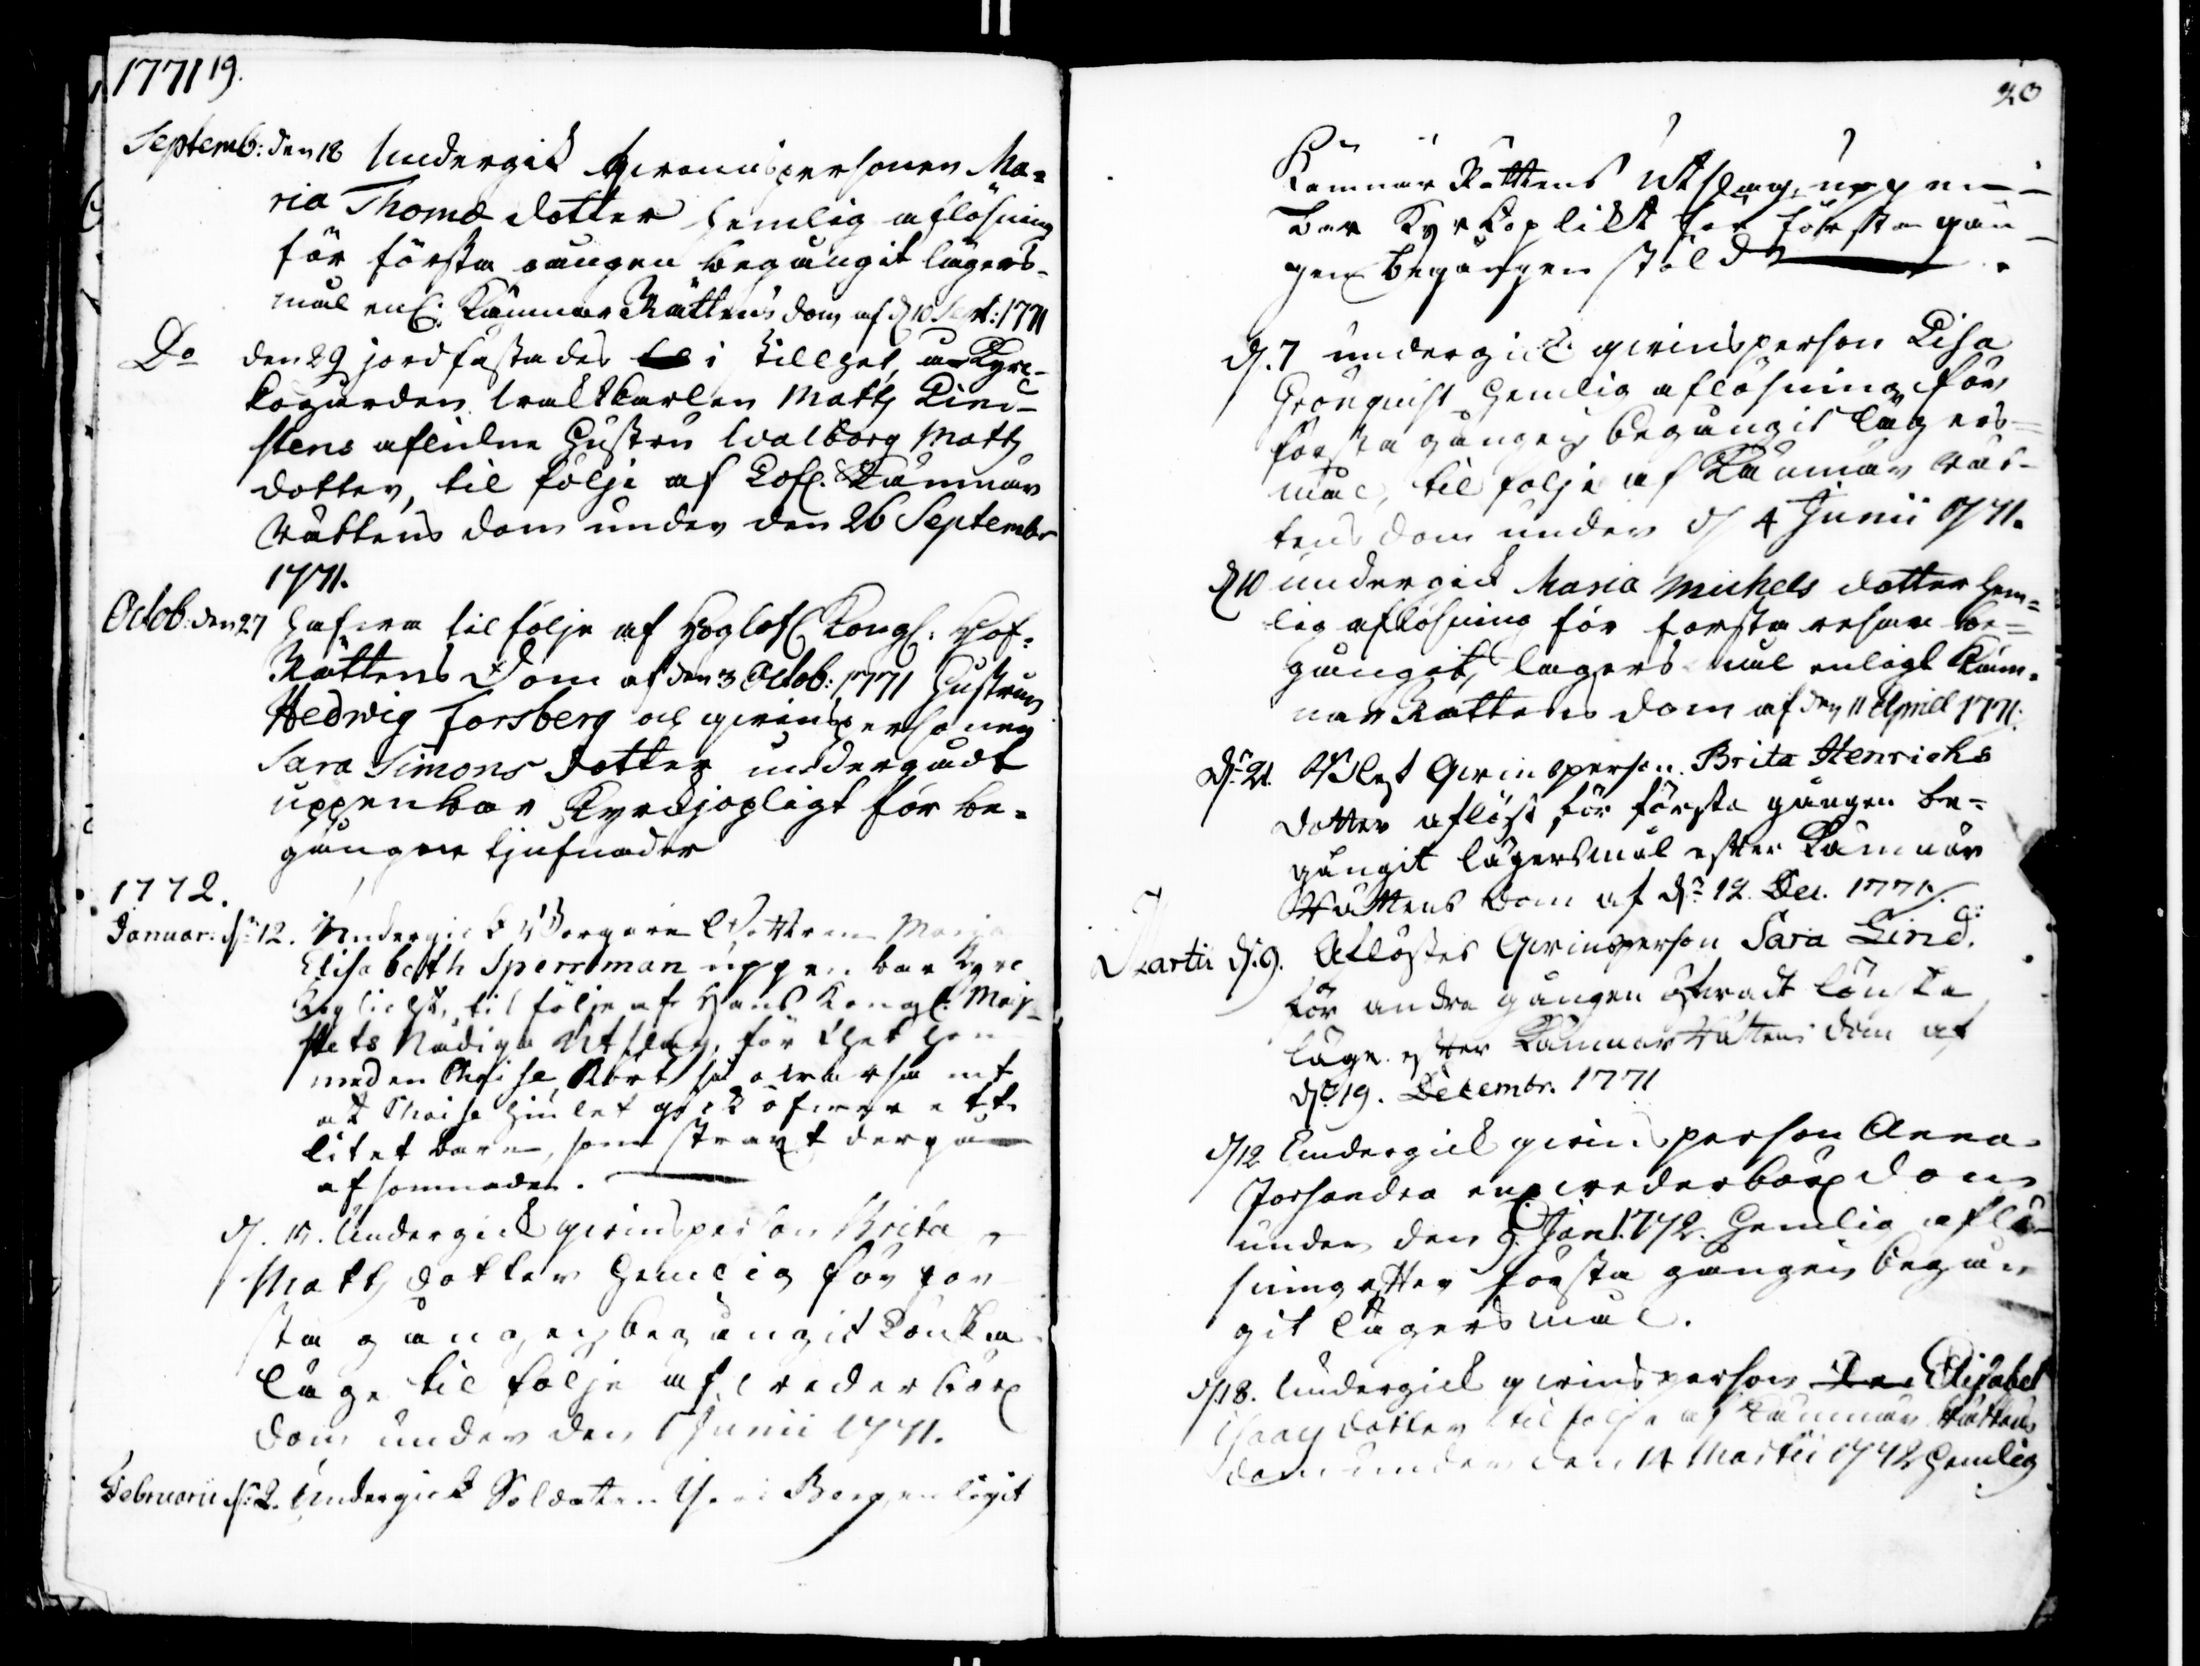 1771 19.
Septemb: den 18 Undergick qwinnspersonen Ma-
ria Thomæ dotter hemlig aflösning
för första gången begångit lägers-
mål enl. Kämnärs Rättens dom af d 10 Sept: 1771
Do den 29 jordfästades i stillhet, å Kyrc-
kogården Matts Lind-
stens aflidne Hustru Walborg Matts
dotter, til följe af Lofl. Kämnärs
Rättens dom under den 26 Septembr
1771.
Octob: den 27 hafwa til följe af Höglofl Kongl: Hof-
Rättens Dom af den 3 Octob: 1771 Hustrun
Hedwig Forsberg och qwinspersonen
Sara Simons dotter undergådt
uppenbar Kyrckjopligt för be-
gångne tjufnader
1772.
Januar: d: 12. Undergick Borgare Dottren Maria
Elisabeth Sperrman uppenbar Kyrc
kioplickt, til följe af Hans Kongl: Maj-
stets Nådiga Utslag, för thet hon
med en Chaise kört så owarsamt
at Chaise hjulet gick öfwer ett
litet barn, som straxt derpå
afsomnade.
d. 15. Undergick qwinsperson Brita
Matts dotter hemlig för för-
sta gången begångit Lönska
läge til följe af wederbör
dom under den 1 Junii 1771.
Februarii d: 2. Undergick Soldaten Berg, enligit
20
Kämnärs Rättens Utslag, uppen-
bar Kyrkoplikt för första gån-
gen begången stöld
d. 7 undergick qwinsperson Lisa
Grönquist hemlig aflösning för
första gången begångit lägers-
mål, til följe af Kämnärs Rät-
tens dom under d 4 Junii 1771.
d 10 undergick Maria Michels dotter hem-
lig aflösning för första resan be-
gångit, lägersmål enligt Käm-
närs Rättens dom af den 11 April 1771.
d: 21. Blef Qwinsperson Brita Henrichs
dotter aflöst för första gången be-
gångit lägersmål efter Kämnärs
Rättens Dom af d: 12. Dec. 1771.
Martii d. 9. Aflöstes Qwinsperson Sara Lind.
för andra gången öfwadt Lönska
läge efter Kämnärs Rättens dom af
d: 19. Decembr. 1771
d 12 Undergick qwinsperson Anna
enl. wederbörl dom
under den 9. Jan. 1772. hemlig aflö-
sning efter första gången begån-
git lägersmål.
d. 18. Undergick qwinsperson Elisabet
Isaacs dotter til följe af Kämnärs Rättens
dom under den 14 Martii 1772 hemlig